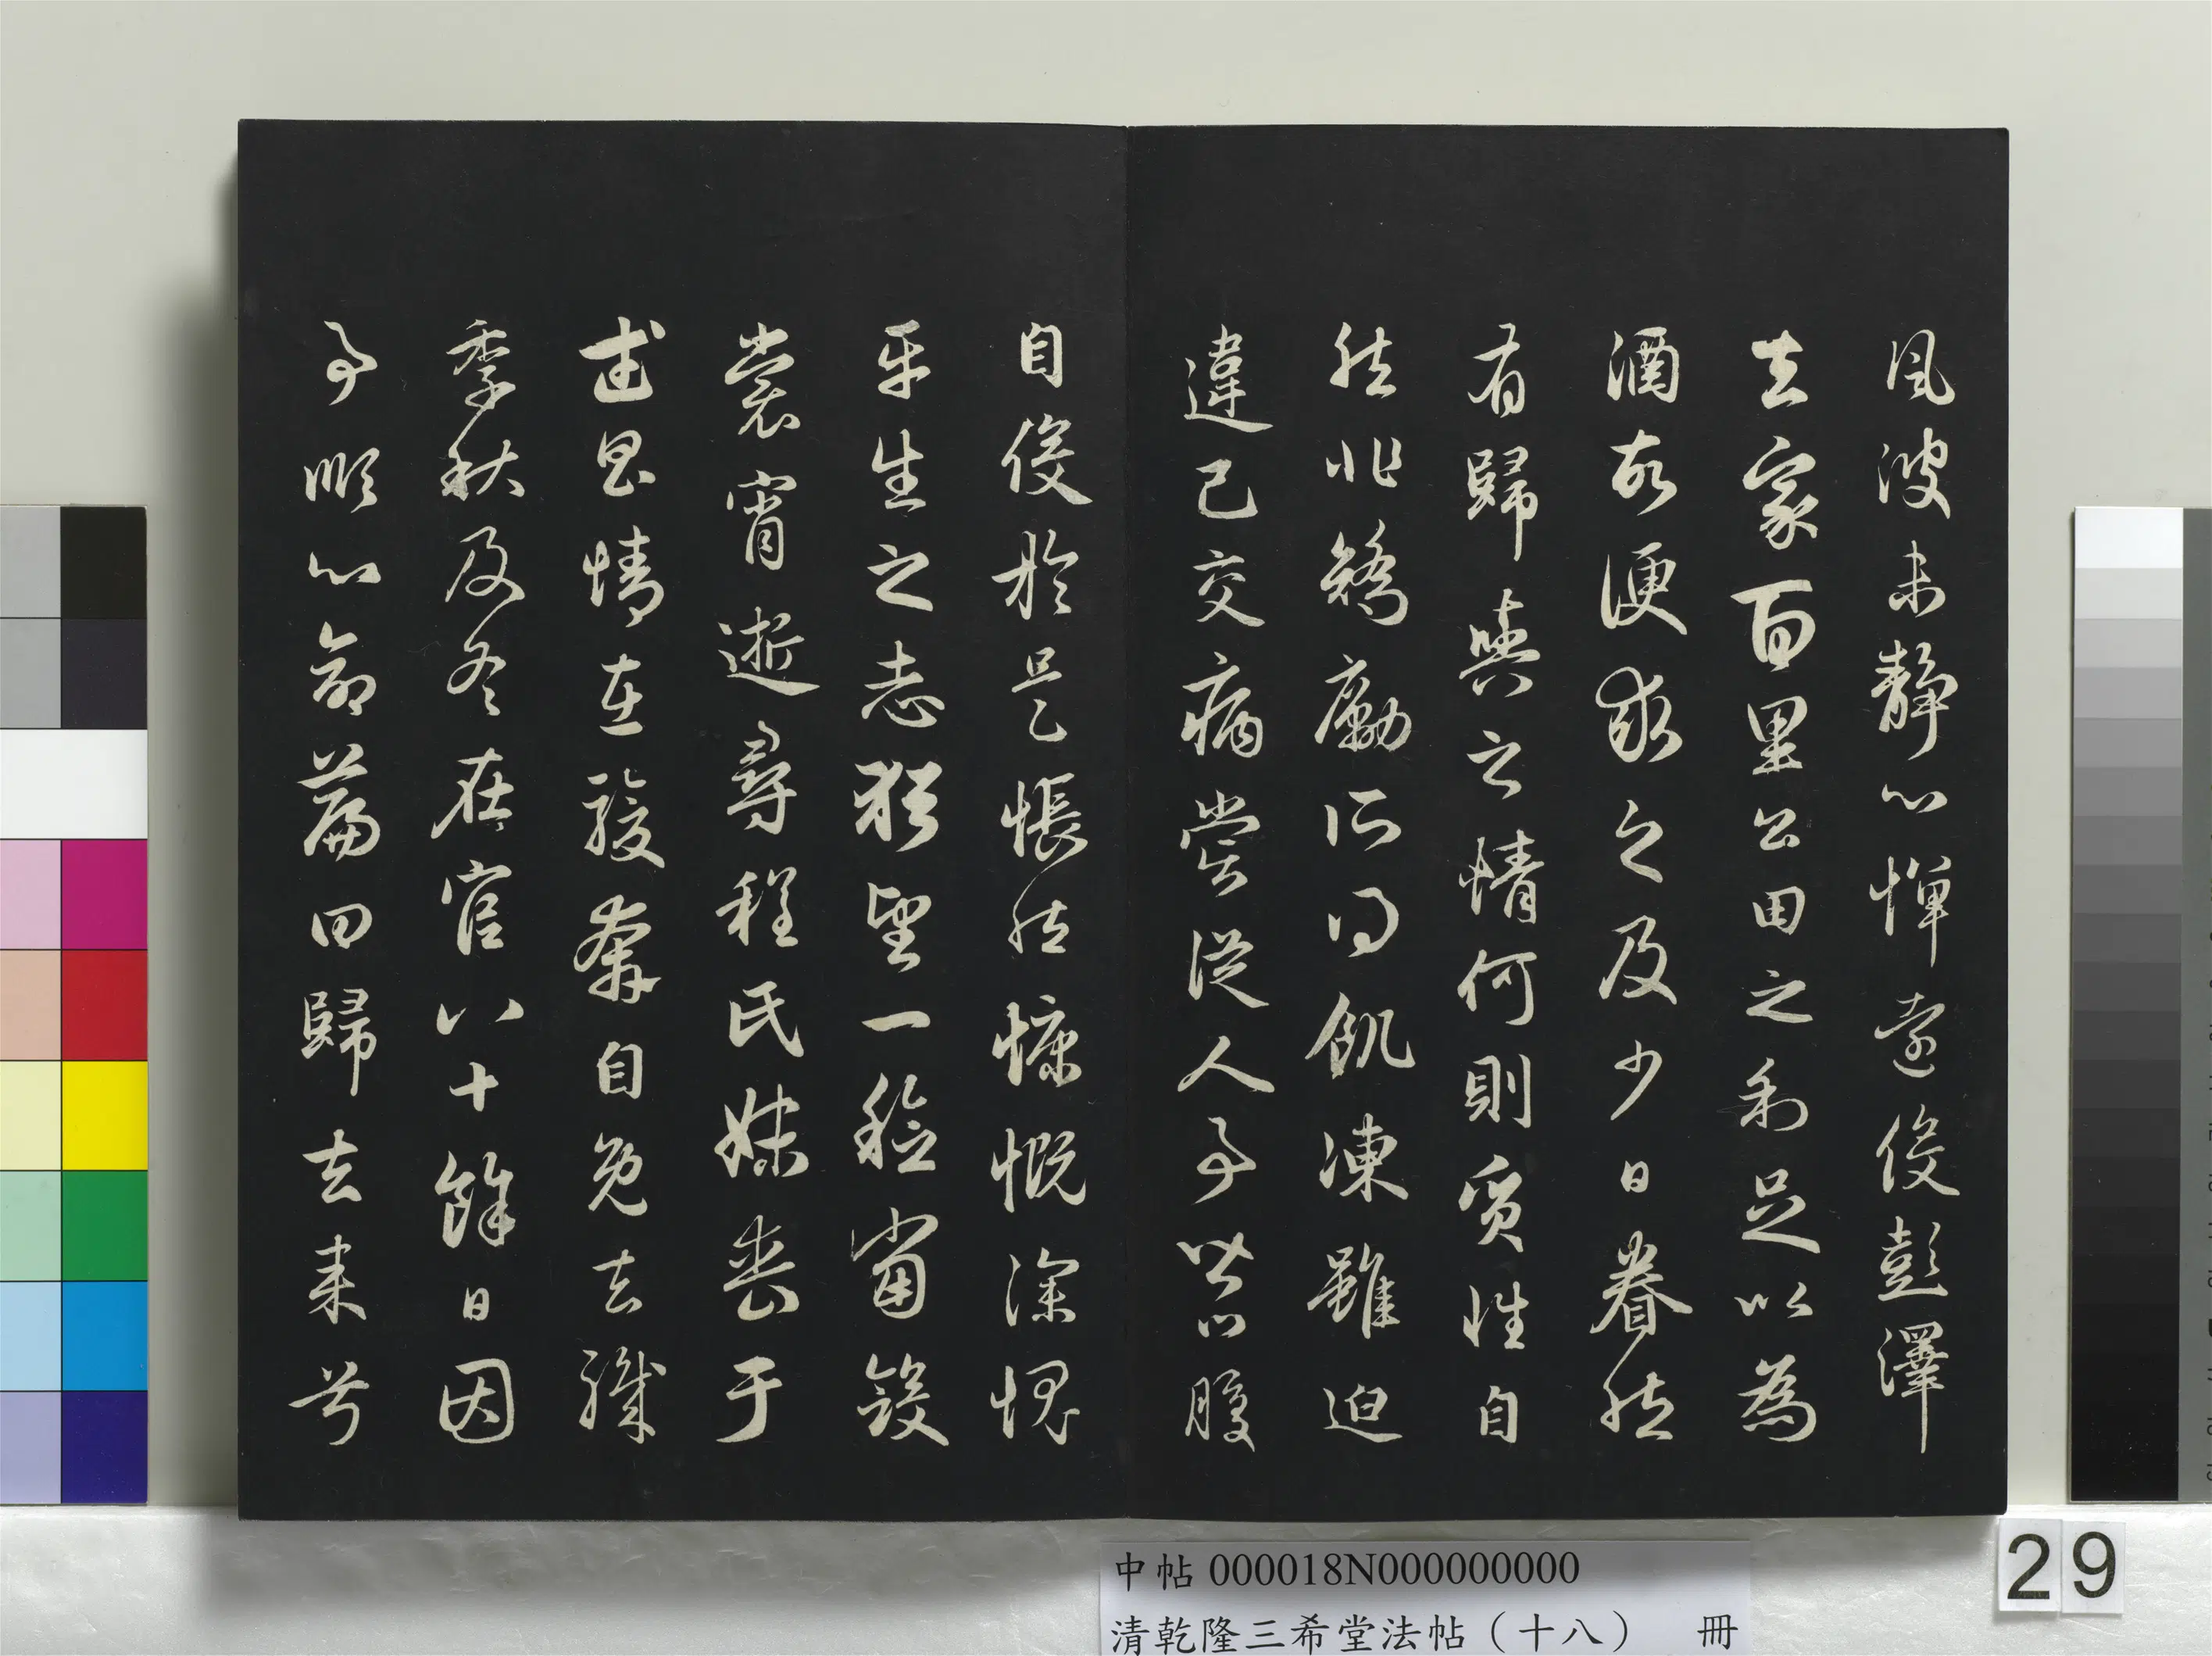 風波未靜心憚遠役彭澤
去家百里公田之利足以為
酒故便求之及少日眷然
有歸與之情何則質性自
然非矯勵所得飢凍雖迫
違己交病嘗從人事皆口腹
自役於是悵然慷慨深愧
平生之志猶望一稔當斂
裳宵逝尋程氏妹喪于
武昌情在駿奔自免去職
季秋及冬在官八十餘日因
事順心命篇曰歸去來兮
中帖 000018N000000000
清乾隆三希堂法帖（十八） 冊
29